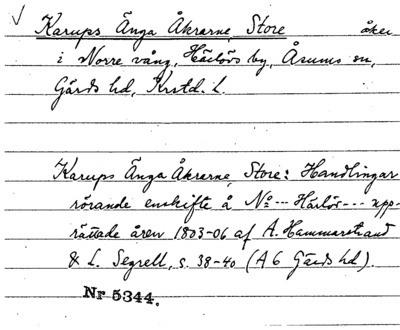 √ Karups Änga Åkrarne, Store åker
i Norre vång, Härlövs by, Åsums sn,
Gärds hd, Krstd. l.
Karups Änga Åkrarne, Store: Handlingar
rörande enskifte å No --- Härlöv --- upp-
rättade åren 1803-06 af A. Hammarstrand
& L. Segrell, s. 38-40 (A 6 Gärds hd).
Nr 5344.